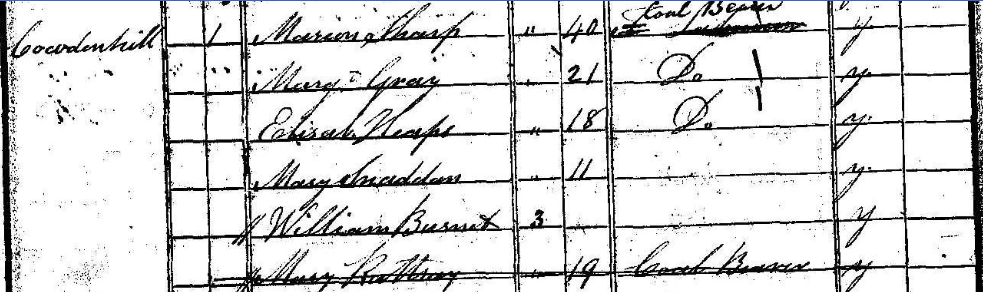 Cowdenhill 1 Marion Sharp " 40 Coal Bearer y
Marg.t Gray " 21 Do y
Elisab. Heaps " 18 Do y
Mary Snaddon " 11 y
William Burnet 3 y
Mary Rattray " 19 Coal Bearer y